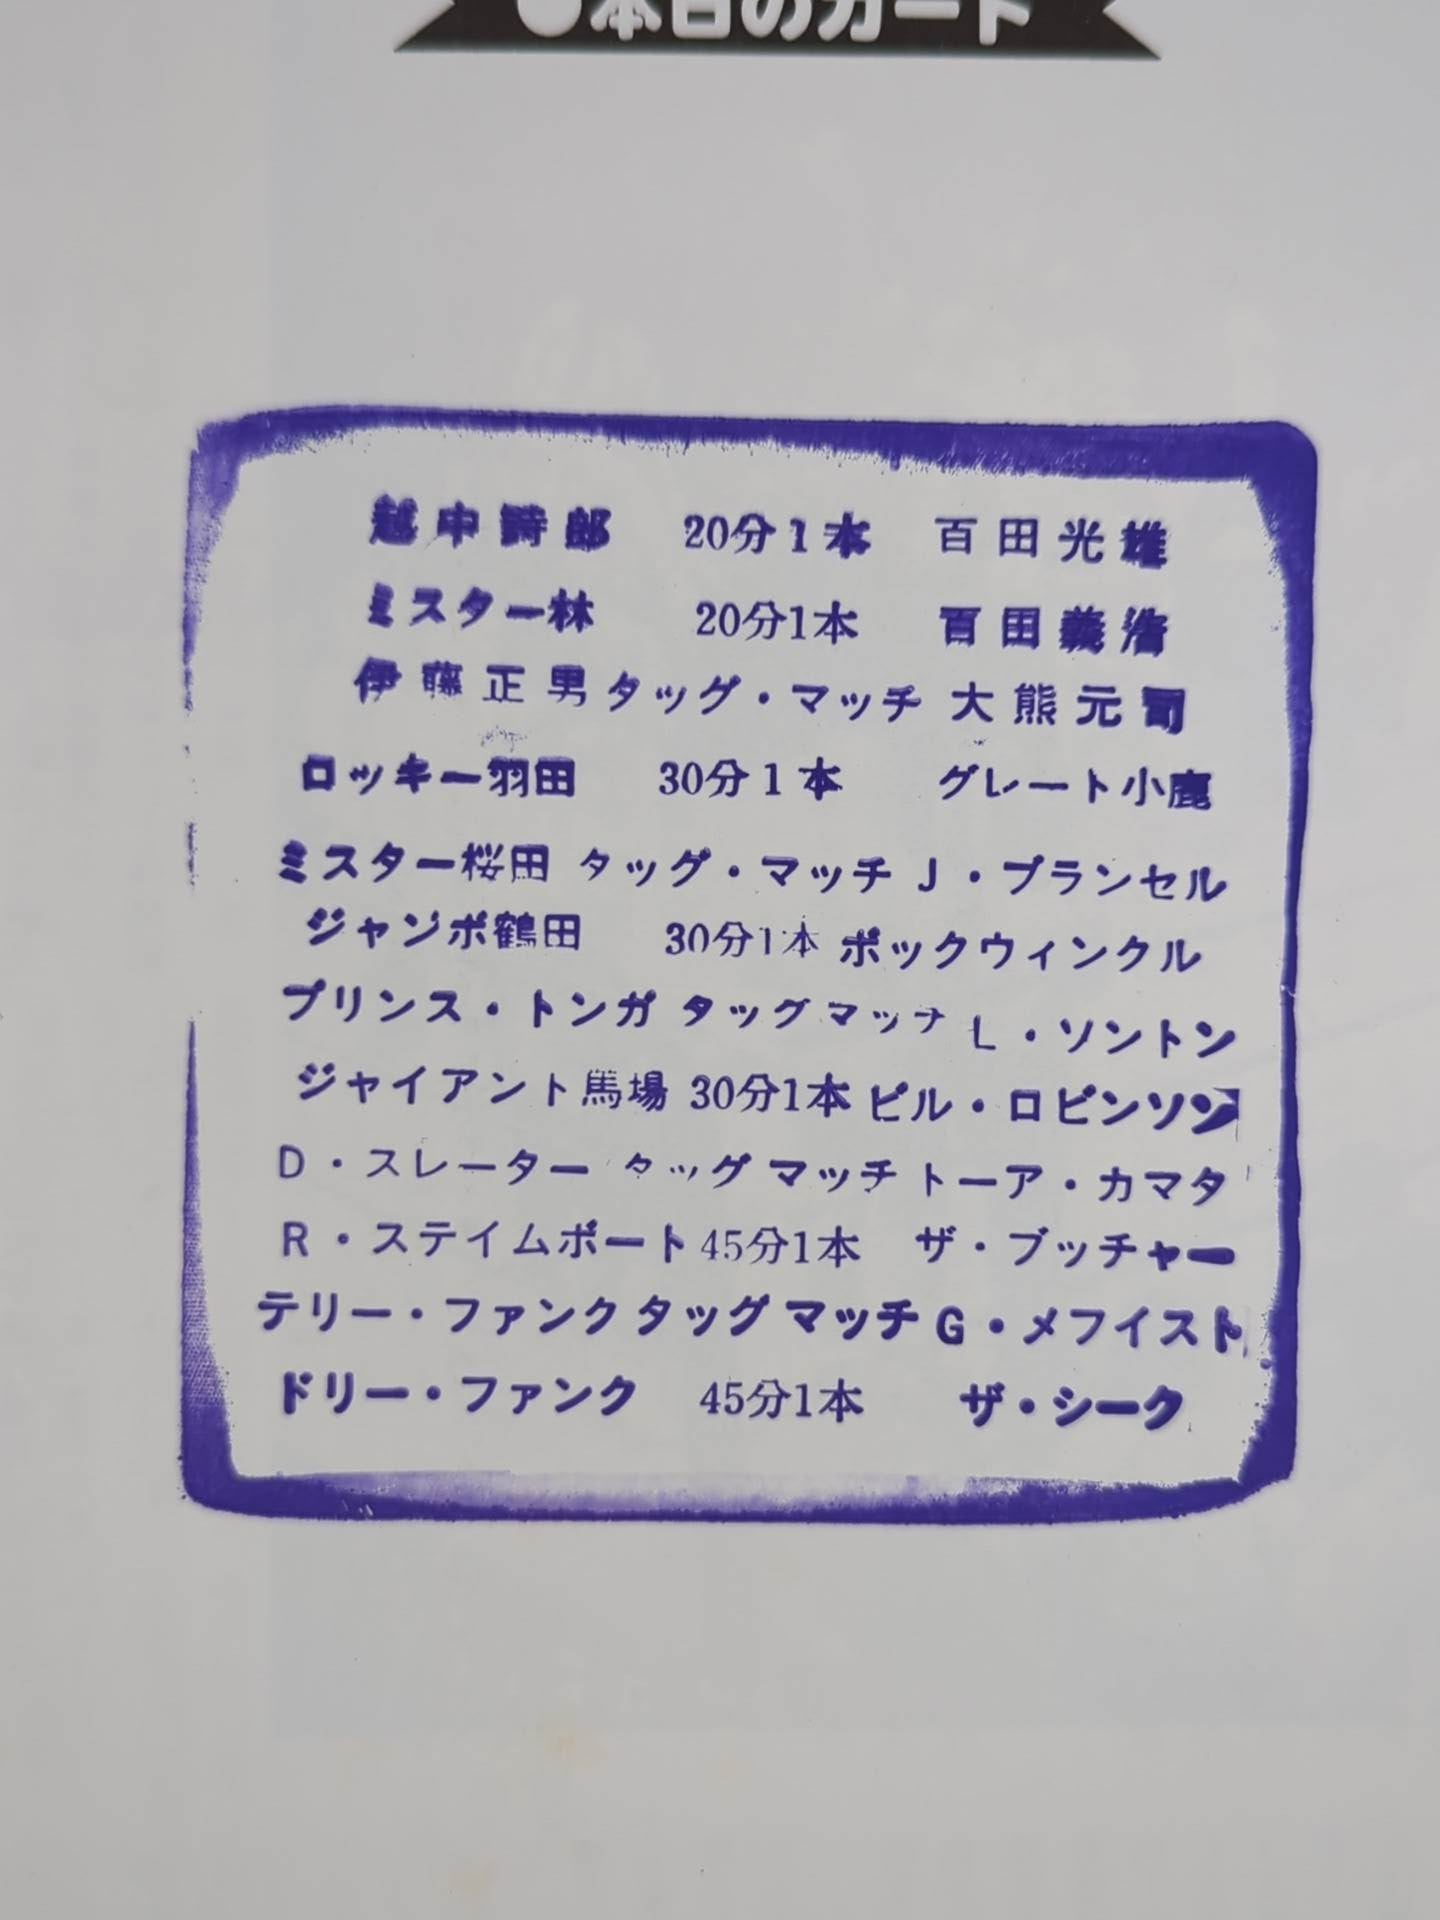 ●本日のカード
越中詩郎 20分1本 百田光雄
ミスター林 20分1本 百田義浩
伊藤正男 タッグ・マッチ 大熊元司
ロッキー羽田 30分1本 グレート小鹿
ミスター桜田 タッグ・マッチ J・ブランセル
ジャンボ鶴田 30分1本 ボックウィンクル
プリンス・トンガ タッグマッチ L・ソントン
ジャイアント馬場 30分1本 ビル・ロビンソン
D・スレーター タッグマッチ トーア・カマタ
R・ステイムボート 45分1本 ザ・ブッチャー
テリー・ファンク タッグマッチ G・メフイスト
ドリー・ファンク 45分1本 ザ・シーク